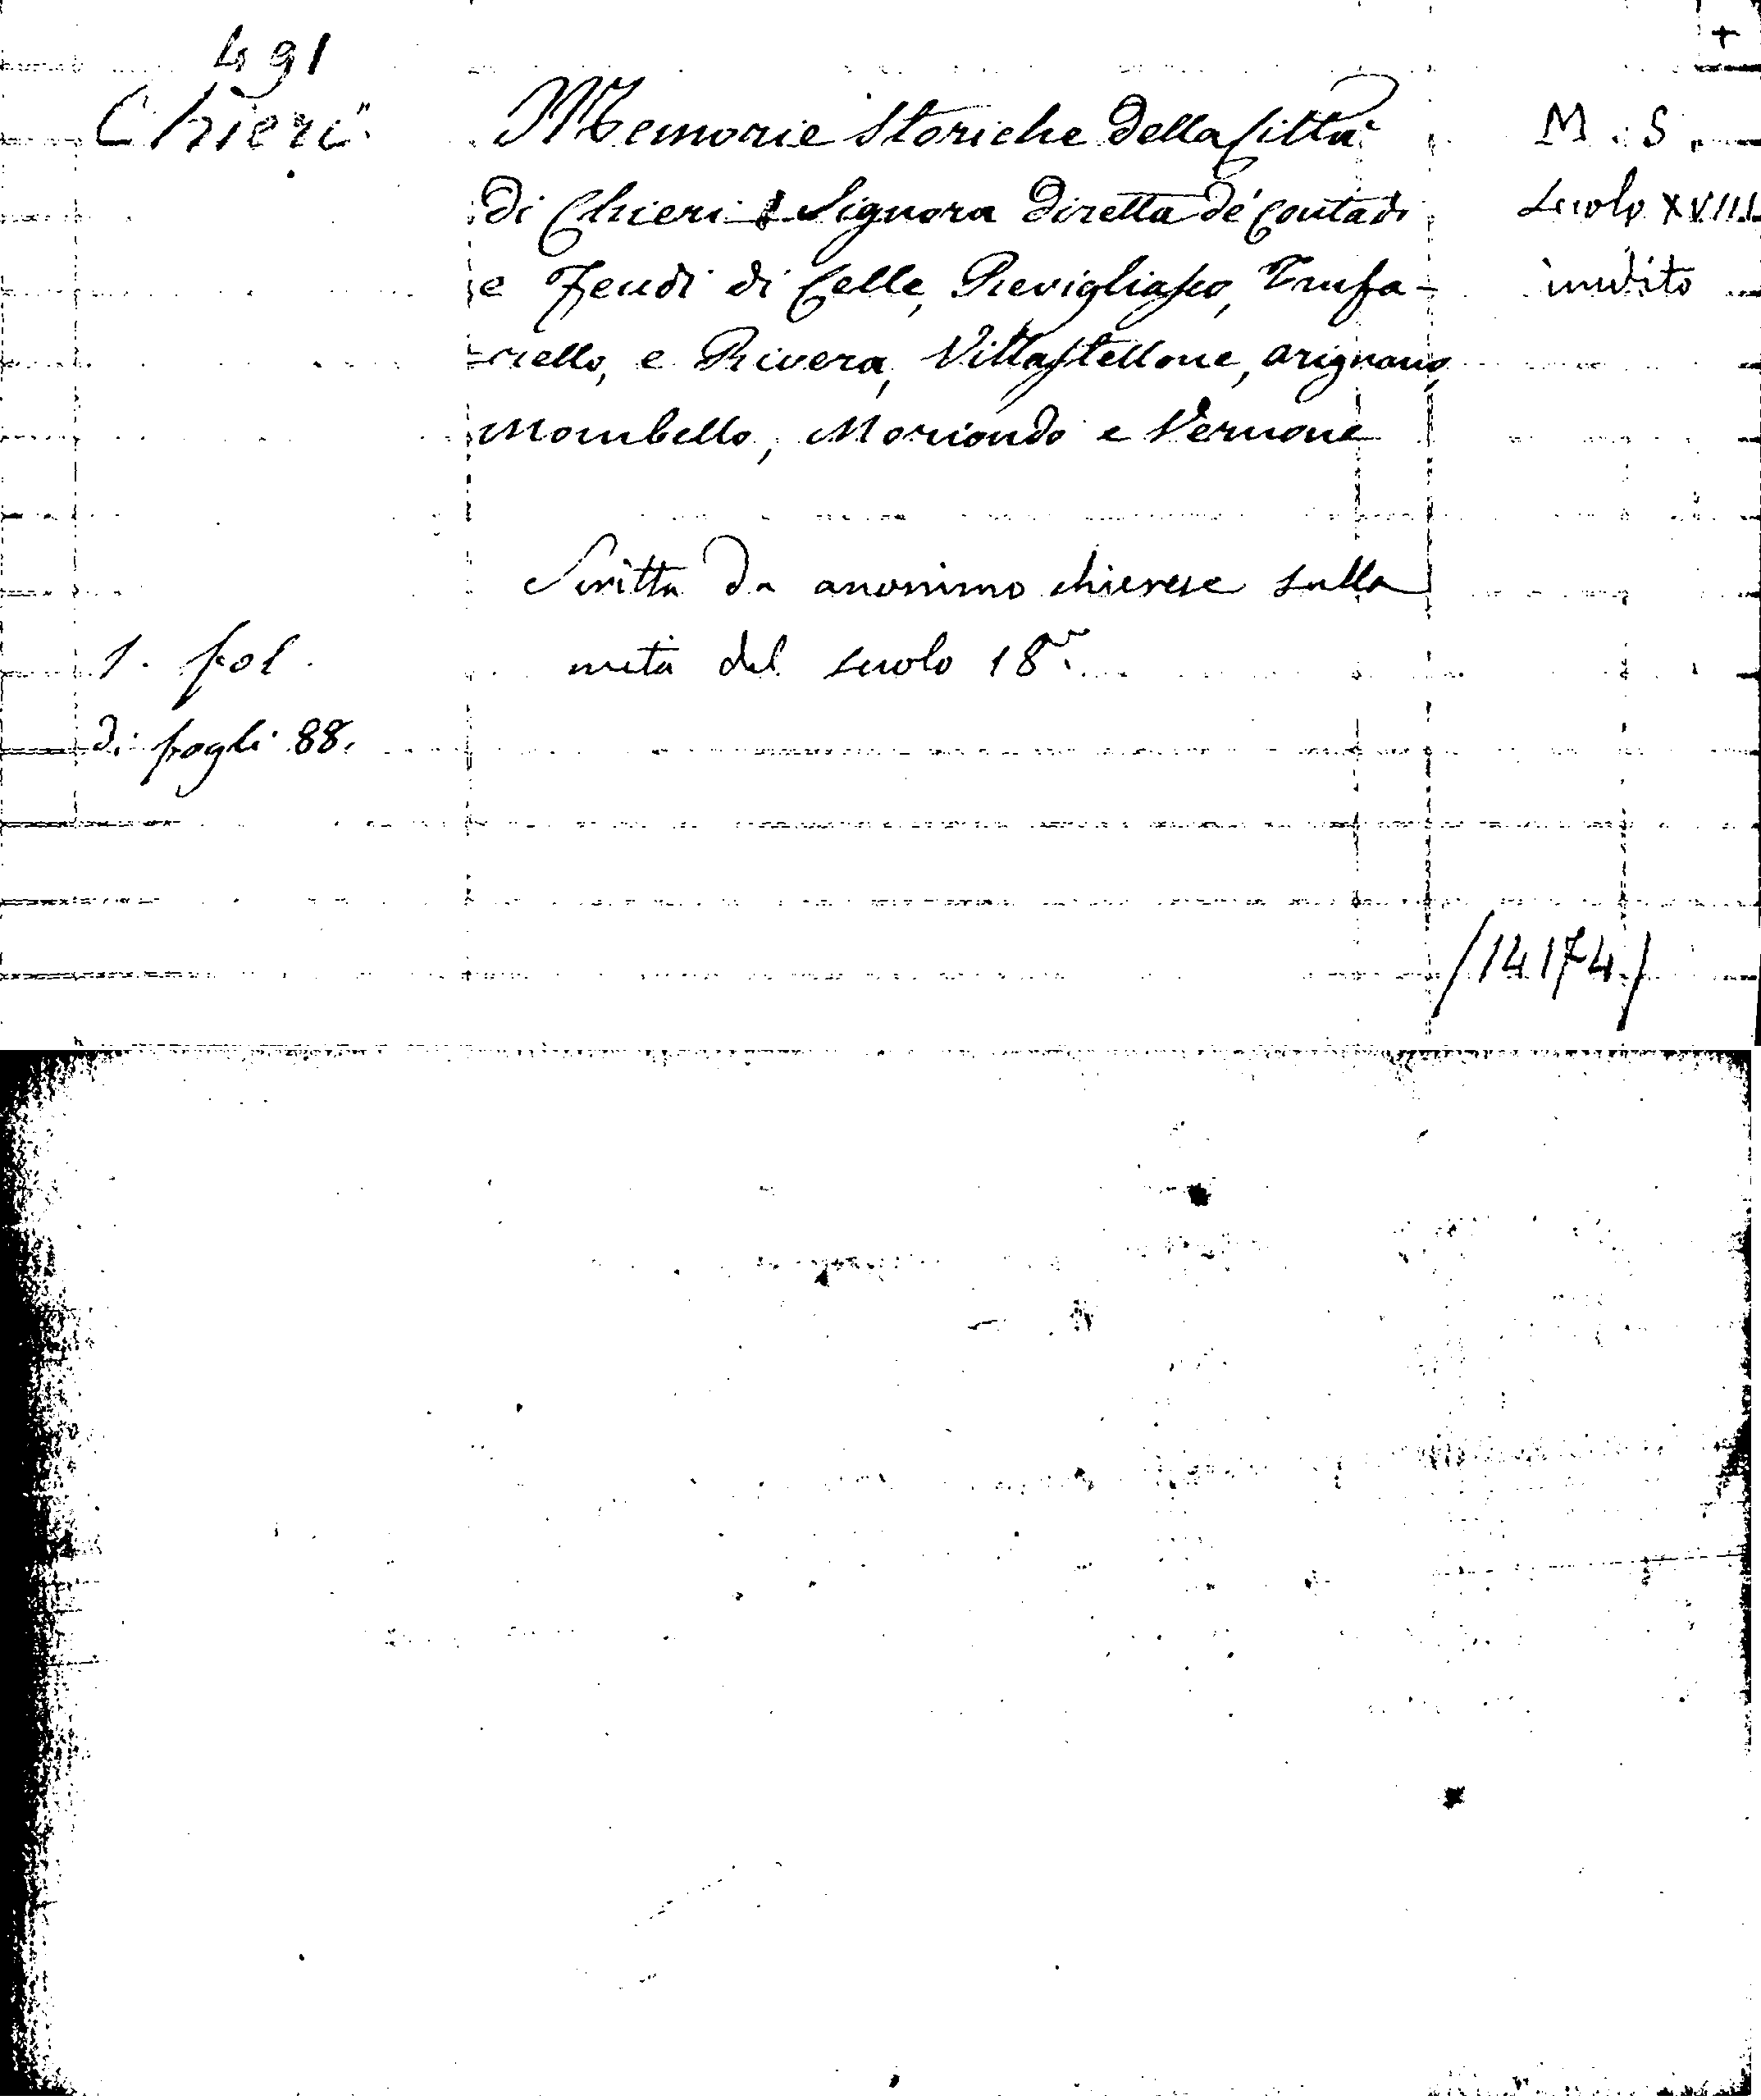 +
491
Chieri
Memorie Storiche della Città
M. S.
di Chieri Signora diretta de' Contadi
Secolo XVIII
e Feudi di Celle, Revigliasco, Trufa-
inedito
-rello, e Rivera, Villastellone, Arignano,
Mombello, Moriondo e Vernone
Scritta da anonimo chierese sulla
1. fol.
metà del secolo 18°.
di fogli 88.
/14174/